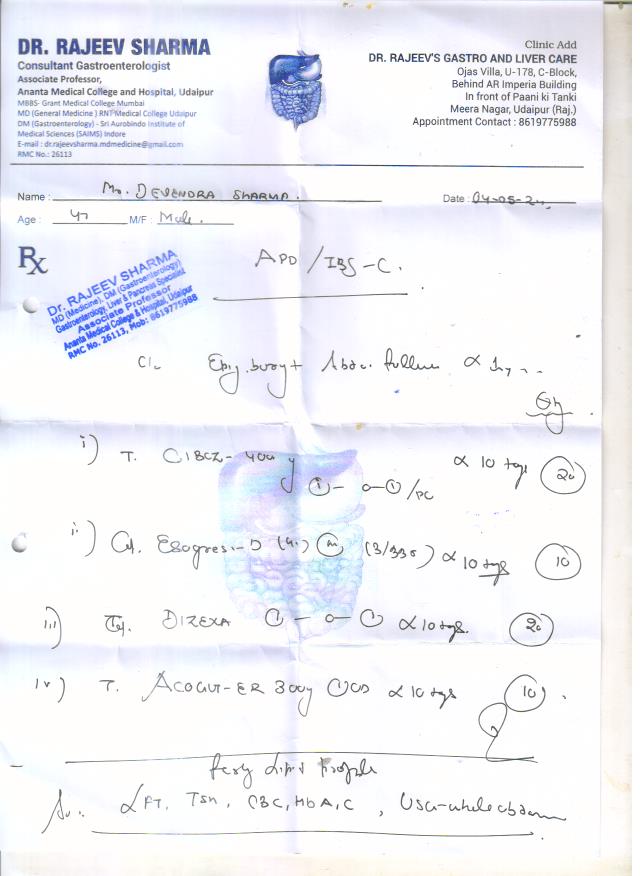 DR. RAJEEV SHARMA
Consultant Gastroenterologist
Associate Professor,
Ananta Medical College and Hospital, Udaipur
MBBS- Grant Medical College Mumbai
MD (General Medicine ) RNT Medical College Udaipur
DM (Gastroenterology) - Sri Aurobindo Institute of
Medical Sciences (SAIMS) Indore
E-mail : dr.rajeevsharma.mdmedicine@gmail.com
RMC No.: 26113
Clinic Add
DR. RAJEEV'S GASTRO AND LIVER CARE
Ojas Villa, U-178, C-Block,
Behind AR Imperia Building
In front of Paani ki Tanki
Meera Nagar, Udaipur (Raj.)
Appointment Contact : 8619775988
Name : Mr. DEVENDRA SHARMA. Date : 04-05-2
Age : M/F : Male.
Rx
APD / IBS-C.
Dr. RAJEEV SHARMA
MD (Medicine), DM (Gastroenterology)
Gastroenterology, Liver & Pancreas Specialist
Associate Professor
Ananta Medical College & Hospital, Udaipur
RMC No. 26113, Mob: 8619775988
C/o
i) T. 1 - 0 - 1 /PC x 10 20
ii) (3/336) x 10 10
iii) DIZEXA 1 - 0 - 1 x 10 20
iv) T. ACOGUT-ER 300 1 OD x 10 10
profile
LFT, TSH, CBC, HbA1C, USG-whole abdomen